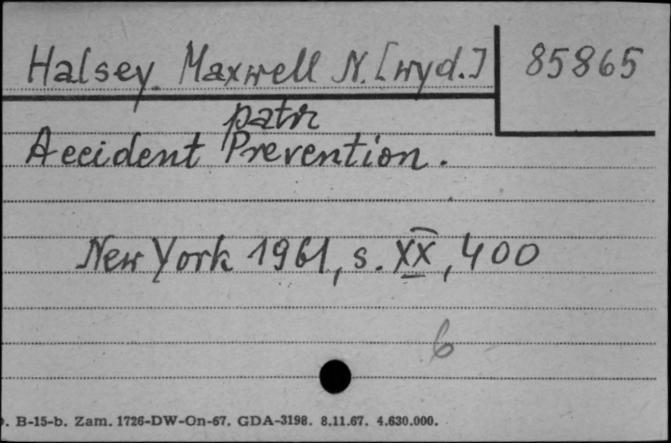 Halsey Maxwell N. [wyd.] 85865
patrz
Accident Prevention.
New York 1961, s. XX, 400
6
B-15-b. Zam. 1726-DW-On-67. GDA-3198. 8.11.67. 4.630.000.